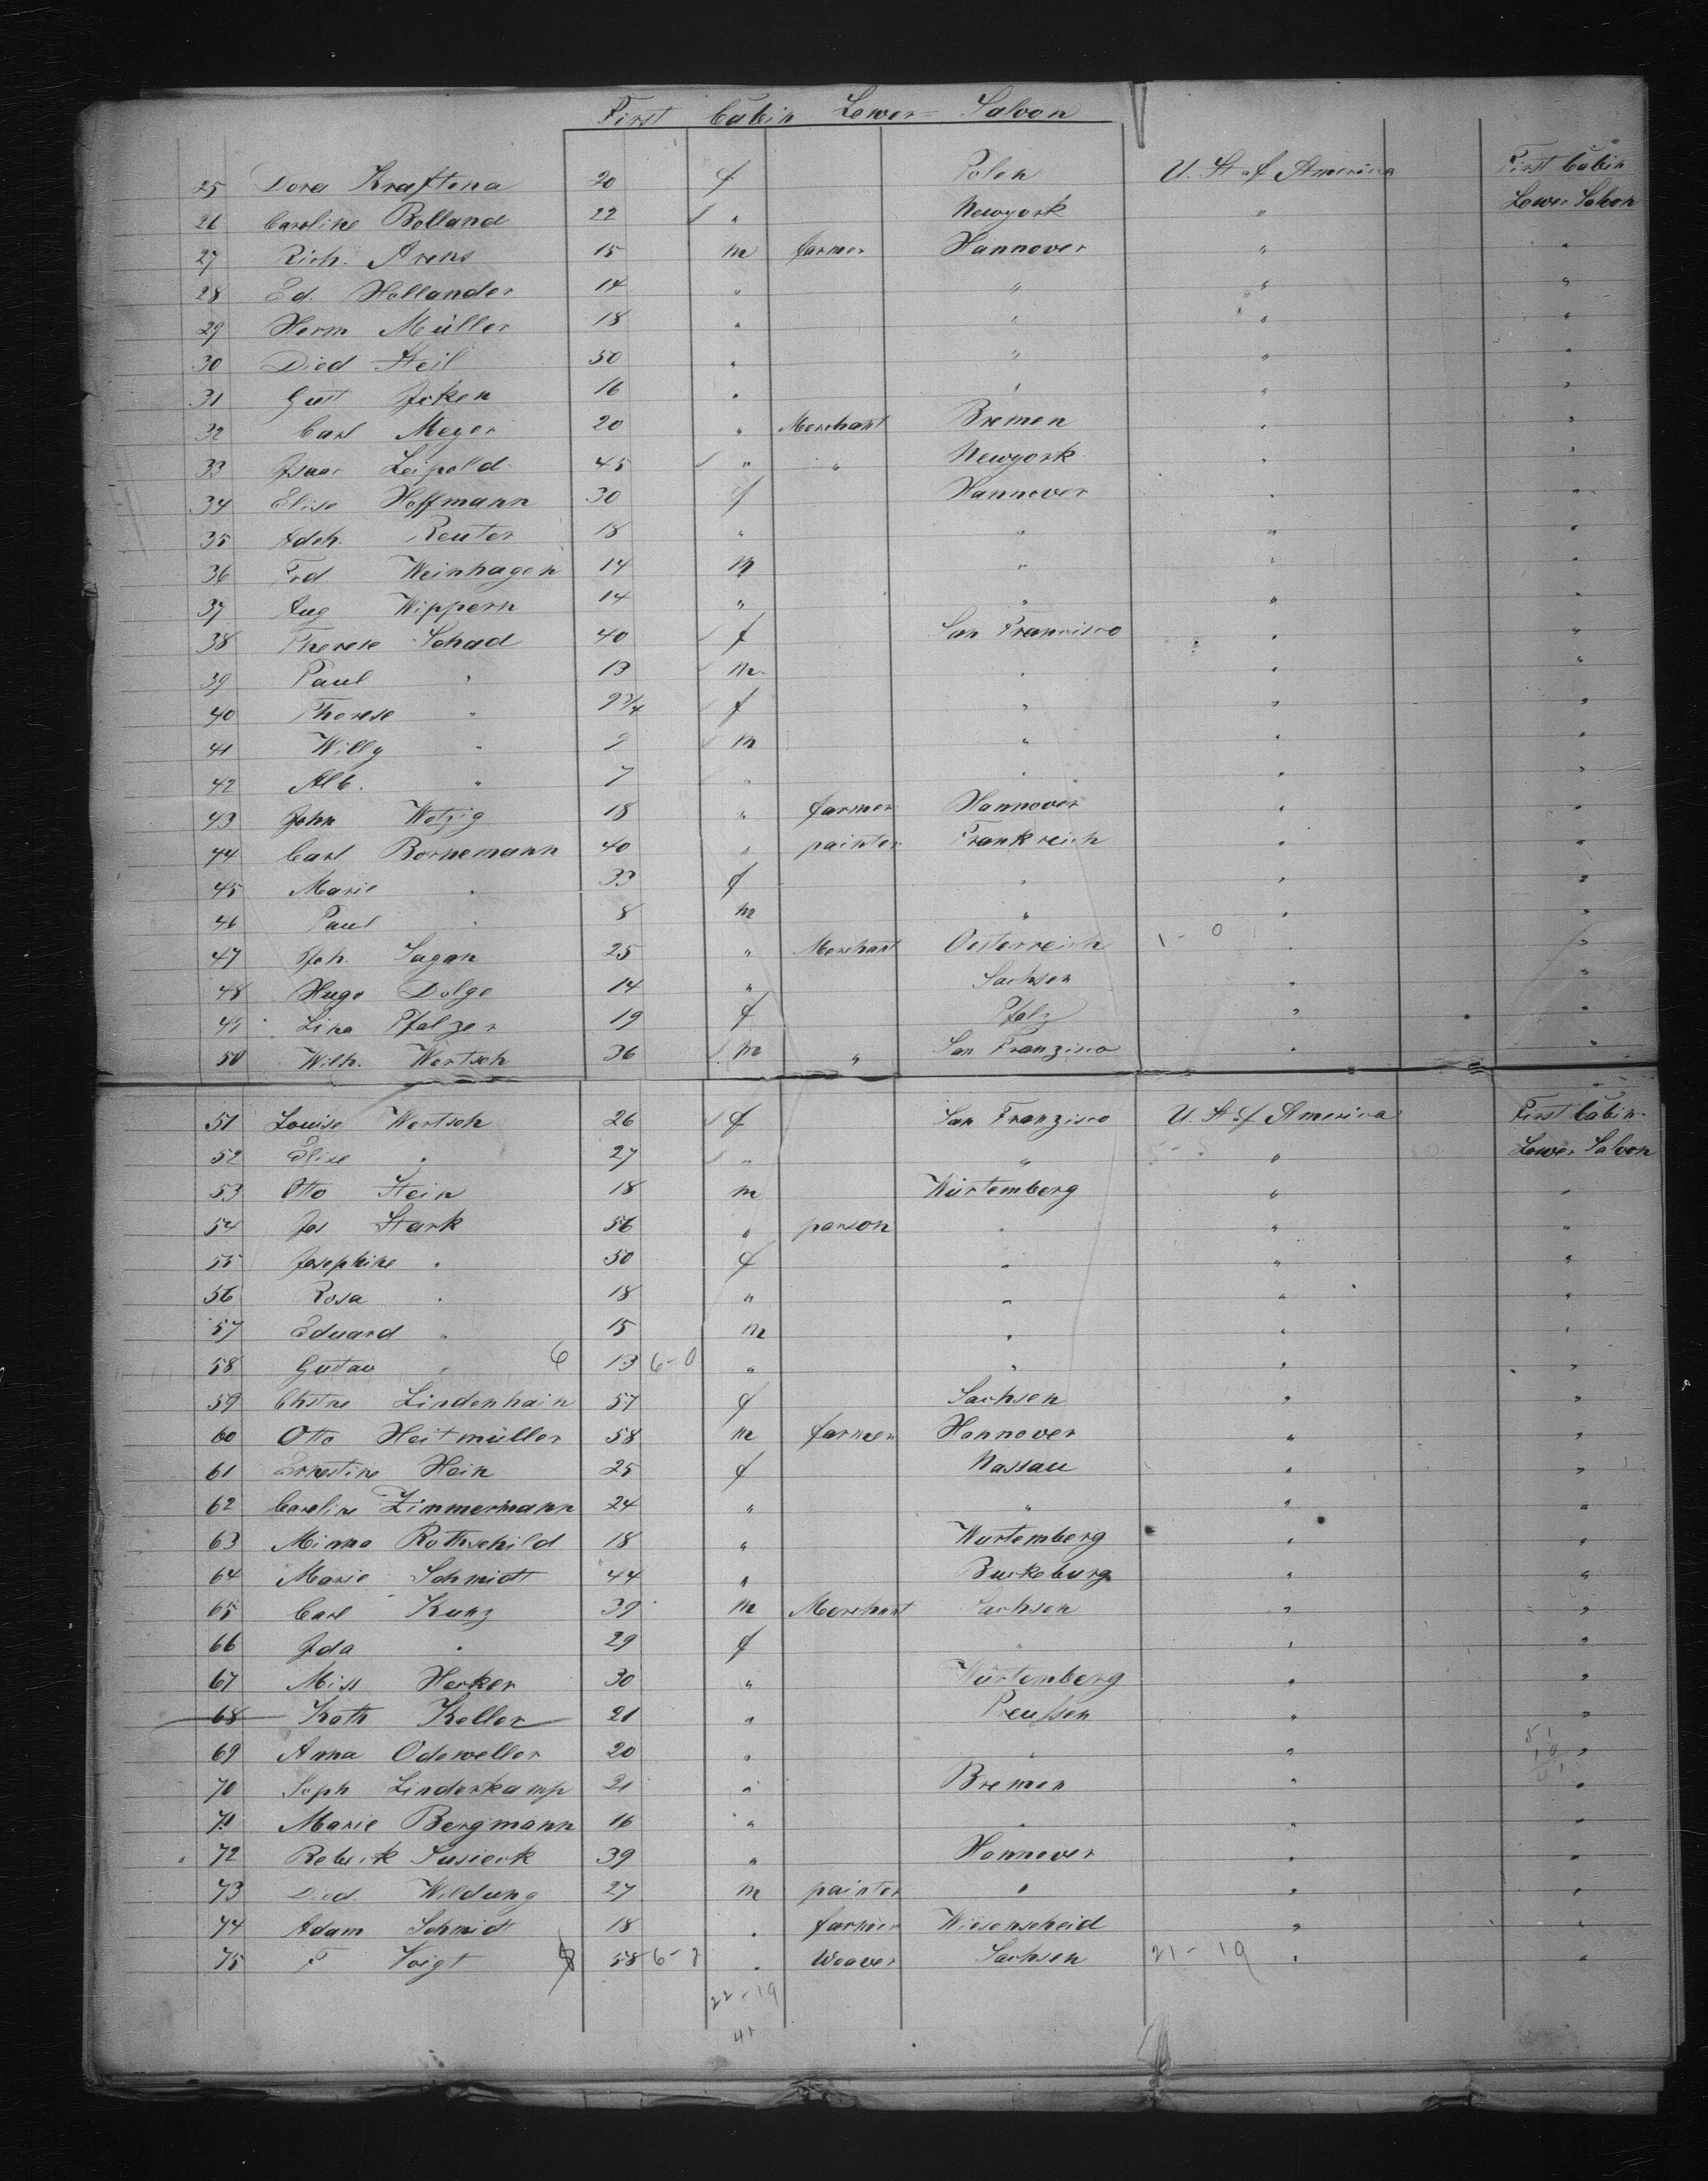 First Cabin Lower=Saloon
25 Dora Kraftena 20 f Polen U. St of America First Cabin
26 Caroline Bolland 22 " Newyork " Lower Saloon
27 Rich. Arens 15 m farmer Hannover " "
28 Ed. Hollander 14 " " " "
29 Herm Müller 18 " " " "
30 Died Steil 50 " " " "
31 Gust Joken 16 " " " "
32 Carl Meyer 20 " Merchant Bremen " "
33 Isaac Leipold 45 " " Newyork " "
34 Elise Hoffmann 30 f Hannover " "
35 Adeh. Reuter 18 " " " "
36 Frd Weinhagen 14 m " " "
37 Aug Wippern 14 " " " "
38 Therese Schad 40 f San Francisco " "
39 Paul " 13 m. " " "
40 Therese " 9 3/4 f " " "
41 Willy " 9 m " " "
42 Alb. " 7 " " " "
43 John Wetzig 18 " farmer Hannover " "
44 Carl Bornemann 40 " painter Frankreich " "
45 Marie " 33 f " " "
46 Paul " 8 m " " "
47 Joh. Sagan 25 " Merchant Oesterreich 1-0 " "
48 Hugo Dolge 14 " Sachsen " "
49 Lina Pfalzer 19 f Pfalz " "
50 Wilh. Wertsch 36 m " San Franzisco " "
51 Louise Wertsch 26 f San Franzisco U. St of America First Cabin
52 Elise " 27 " " " Lower Saloon
53 Otto Stein 18 m Würtemberg " "
54 Jos Stark 56 " parson " " "
55 Josephine " 50 f " " "
56 Rosa " 18 " " " "
57 Eduard " 15 m " " "
58 Gustav " 6 13 6-0 " " " "
59 Chstne Lindenhain 57 f Sachsen " "
60 Otto Heitmüller 58 m farmer Hannover " "
61 Ernestine Hein 25 f Nassau " "
62 Caroline Zimmermann 24 " " " "
63 Minna Rothschild 18 " Wurtemberg " "
64 Marie Schmidt 44 " Buckeburg " "
65 Carl Kunz 39 m Merchant Sachsen " "
66 Ida " 29 f " " "
67 Miss Hecker 30 " Würtemberg " "
68 Kath Keller 21 " Preußen " "
69 Anna Odeweller 20 " " " "
70 Soph Linderkamp 21 " Bremen " "
71 Marie Bergmann 16 " " " "
72 Rebeck Susieck 39 " Hannover " "
73 Died. Wildung 27 m painter " " "
74 Adam Schmidt 18 " farmer Wiesenscheid " "
75 F Voigt 8 58 6-2 " Weaver Sachsen 21-19 " "
22-19
41